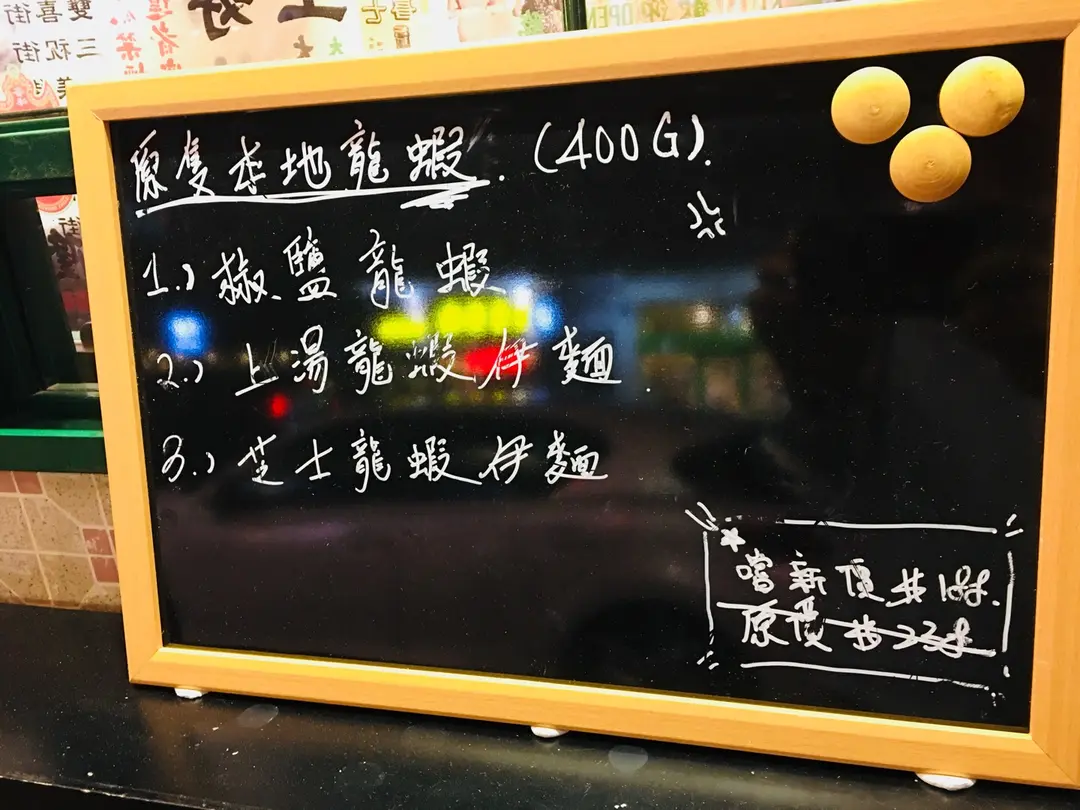 雙喜街
三祝街
OPEN
原隻本地龍蝦. (400G).
1.) 椒鹽龍蝦
2.) 上湯龍蝦伊麵.
3.) 芝士龍蝦伊麵
嚐新價 $188.
原價 $238